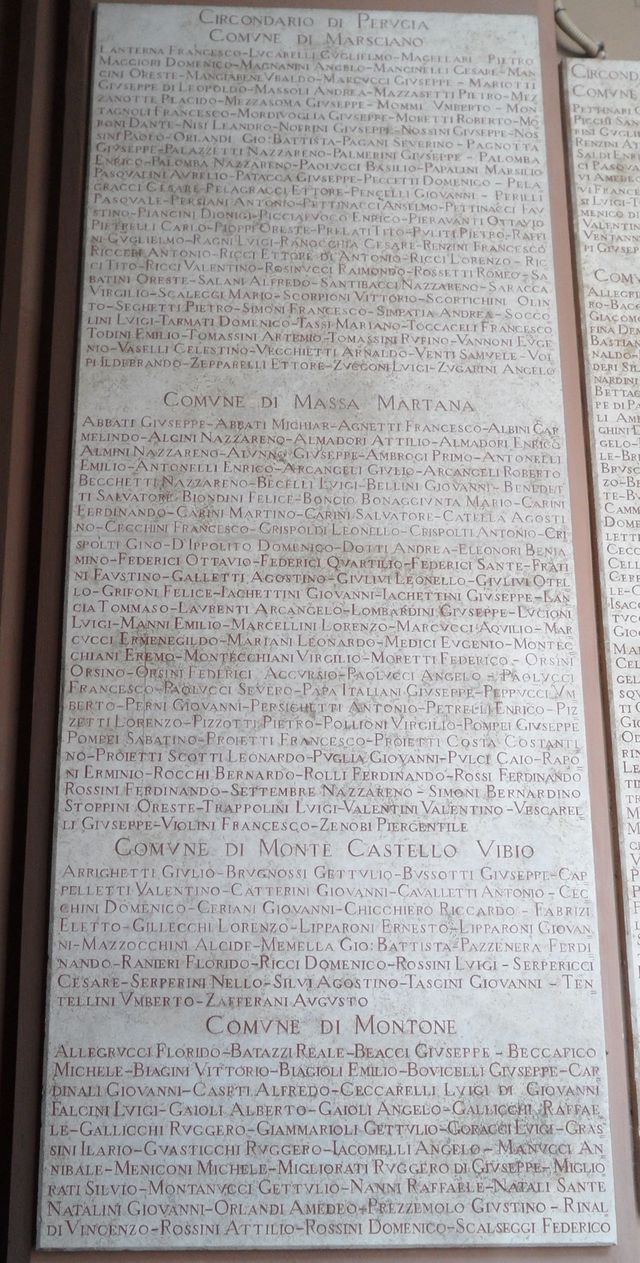 CIRCONDARIO DI PERVGIA
COMVNE DI MARSCIANO
LANTERNA FRANCESCO-LVCARELLI GVGLIELMO-MAGELLARI PIETRO
MAGGIORI DOMENICO-MAGNANINI ANGELO-MANCINELLI CESARE-MAN
CINI ORESTE-MANGIABENE VBALDO-MARCVCCI GIVSEPPE-MARIOTTI
GIVSEPPE DI LEOPOLDO-MASSOLI ANDREA-MAZZASETTI PIETRO-MEZ
ZANOTTE PLACIDO-MEZZASOMA GIVSEPPE-MOMMI VMBERTO-MON
TAGNOLI FRANCESCO-MORDIVOGLIA GIVSEPPE-MORETTI ROBERTO-MO
RONI DANTE-NISI LEANDRO-NOFRINI GIVSEPPE-NOSSINI GIVSEPPE-NOS
SINI PAOLO-ORLANDI GIO:BATTISTA-PAGANI SEVERINO-PAGNOTTA
GIVSEPPE-PALAZZETTI NAZZARENO-PALMERINI GIVSEPPE-PALOMBA
ENRICO-PALOMBA NAZZARENO-PAOLVCCI BASILIO-PAPALINI MARSILIO
PASQVALINI AVRELIO-PATACCA GIVSEPPE-PECCETTI DOMENICO-PELA
GRACCI CESARE-PELAGRACCI ETTORE-PENCELLI GIOVANNI-PERILLI
PASQVALE-PERSIANI ANTONIO-PETTINACCI ANSELMO-PETTINACCI FAV
STINO-PIANCINI DIONIGI-PICCIAFVOCO ENRICO-PIERAVANTI OTTAVIO
PIETRELLI CARLO-PIOPPI ORESTE-PRELATI TITO-PVLITI PIETRO-RAFFI
NI GVGLIELMO-RAGNI LVIGI-RANOCCHIA CESARE-RENZINI FRANCESCO
RICCERI ANTONIO-RICCI ETTORE DI ANTONIO-RICCI LORENZO-RIC
CI TITO-RICCI VALENTINO-ROSINVCCI RAIMONDO-ROSSETTI ROMEO-SA
BATINI ORESTE-SALANI ALFREDO-SANTIBACCI NAZZARENO-SARACCA
VIRGILIO-SCALEGGI MARIO-SCORPIONI VITTORIO-SCORTICHINI OLIN
TO-SEGHETTI PIETRO-SIMONI FRANCESCO-SIMPATIA ANDREA-SOCCO
LINI LVIGI-TARMATI DOMENICO-TASSI MARIANO-TOCCACELI FRANCESCO
TODINI EMILIO-TOMASSINI ARTEMIO-TOMASSINI RVFINO-VANNONI EVGE
NIO-VASELLI CELESTINO-VECCHIETTI ARNALDO-VENTI SAMVELE-VOL
PI ILDEBRANDO-ZEPPARELLI ETTORE-ZVCCONI LVIGI-ZVGARINI ANGELO
COMVNE DI MASSA MARTANA
ABBATI GIVSEPPE-ABBATI MICHIAR-AGNETTI FRANCESCO-ALBINI CAR
MELINDO-ALCINI NAZZARENO-ALMADORI ATTILIO-ALMADORI ENRICO
ALMINI NAZZARENO-ALVNNO GIVSEPPE-AMBROGI PRIMO-ANTONELLI
EMILIO-ANTONELLI ENRICO-ARCANGELI GIVLIO-ARCANGELI ROBERTO
BECCHETTI NAZZARENO-BECELLI LVIGI-BELLINI GIOVANNI-BENEDET
TI SALVATORE-BIONDINI FELICE-BONCIO BONAGGIVNTA MARIO-CARINI
FERDINANDO-CARINI MARTINO-CARINI SALVATORE-CATELLA AGOSTI
NO-CECCHINI FRANCESCO-CRISPOLDI LEONELLO-CRISPOLTI ANTONIO-CRI
SPOLTI GINO-D'IPPOLITO DOMENICO-DOTTI ANDREA-ELEONORI BENIA
MINO-FEDERICI OTTAVIO-FEDERICI QVARTILIO-FEDERICI SANTE-FRATI
NI FAVSTINO-GALLETTI AGOSTINO-GIVLIVI LEONELLO-GIVLIVI OTEL
LO-GRIFONI FELICE-IACHETTINI GIOVANNI-IACHETTINI GIVSEPPE-LAN
CIA TOMMASO-LAVRENTI ARCANGELO-LOMBARDINI GIVSEPPE-LVCIONI
LVIGI-MANNI EMILIO-MARCELLINI LORENZO-MARCVCCI AQVILIO-MAR
CVCCI ERMENEGILDO-MARIANI LEONARDO-MEDICI EVGENIO-MONTEC
CHIANI EREMO-MONTECCHIANI VIRGILIO-MORETTI FEDERICO-ORSINI
ORSINO-ORSINI FEDERICI ACCVRSIO-PAOLVCCI ANGELO-PAOLVCCI
FRANCESCO-PAOLVCCI SEVERO-PAPA ITALIANI GIVSEPPE-PEPPVCCI VM
BERTO-PERNI GIOVANNI-PERSICHETTI ANTONIO-PETRELLI ENRICO-PIZ
ZETTI LORENZO-PIZZOTTI PIETRO-POLLIONI VIRGILIO-POMPEI GIVSEPPE
POMPEI SABATINO-PROIETTI FRANCESCO-PROIETTI COSTA COSTANTI
NO-PROIETTI SCOTTI LEONARDO-PVGLIA GIOVANNI-PVLCI CAIO-RAPO
NI ERMINIO-ROCCHI BERNARDO-ROLLI FERDINANDO-ROSSI FERDINANDO
ROSSINI FERDINANDO-SETTEMBRE NAZZARENO-SIMONI BERNARDINO
STOPPINI ORESTE-TRAPPOLINI LVIGI-VALENTINI VALENTINO-VESCAREL
LI GIVSEPPE-VIOLINI FRANCESCO-ZENOBI PIERGENTILE
COMVNE DI MONTE CASTELLO VIBIO
ARRIGHETTI GIVLIO-BRVGNOSSI GETTVLIO-BVSSOTTI GIVSEPPE-CAP
PELLETTI VALENTINO-CATTERINI GIOVANNI-CAVALLETTI ANTONIO-CEC
CHINI DOMENICO-CERIANI GIOVANNI-CHICCHIERO RICCARDO-FABRIZI
ELETTO-GILLECCHI LORENZO-LIPPARONI ERNESTO-LIPPARONI GIOVAN
NI-MAZZOCCHINI ALCIDE-MEMELLA GIO:BATTISTA-PAZZENERA FERDI
NANDO-RANIERI FLORIDO-RICCI DOMENICO-ROSSINI LVIGI-SERPERICCI
CESARE-SERPERINI NELLO-SILVI AGOSTINO-TASCINI GIOVANNI-TEN
TELLINI VMBERTO-ZAFFERANI AVGVSTO
COMVNE DI MONTONE
ALLEGRVCCI FLORIDO-BATAZZI REALE-BEACCI GIVSEPPE-BECCAFICO
MICHELE-BIAGINI VITTORIO-BIAGIOLI EMILIO-BOVICELLI GIVSEPPE-CAR
DINALI GIOVANNI-CASETI ALFREDO-CECCARELLI LVIGI DI GIOVANNI
FALCINI LVIGI-GAIOLI ALBERTO-GAIOLI ANGELO-GALLICCHI RAFFAE
LE-GALLICCHI RVGGERO-GIAMMARIOLI GETTVLIO-GORACCI LVIGI-GRAS
SINI ILARIO-GVASTICCHI RVGGERO-IACOMELLI ANGELO-MANVCCI AN
NIBALE-MENICONI MICHELE-MIGLIORATI RVGGERO DI GIVSEPPE-MIGLIO
RATI SILVIO-MONTANVCCI GETTVLIO-NANNI RAFFAELE-NATALI SANTE
NATALINI GIOVANNI-ORLANDI AMEDEO-PREZZEMOLO GIVSTINO-RINAL
DI VINCENZO-ROSSINI ATTILIO-ROSSINI DOMENICO-SCALSEGGI FEDERICO